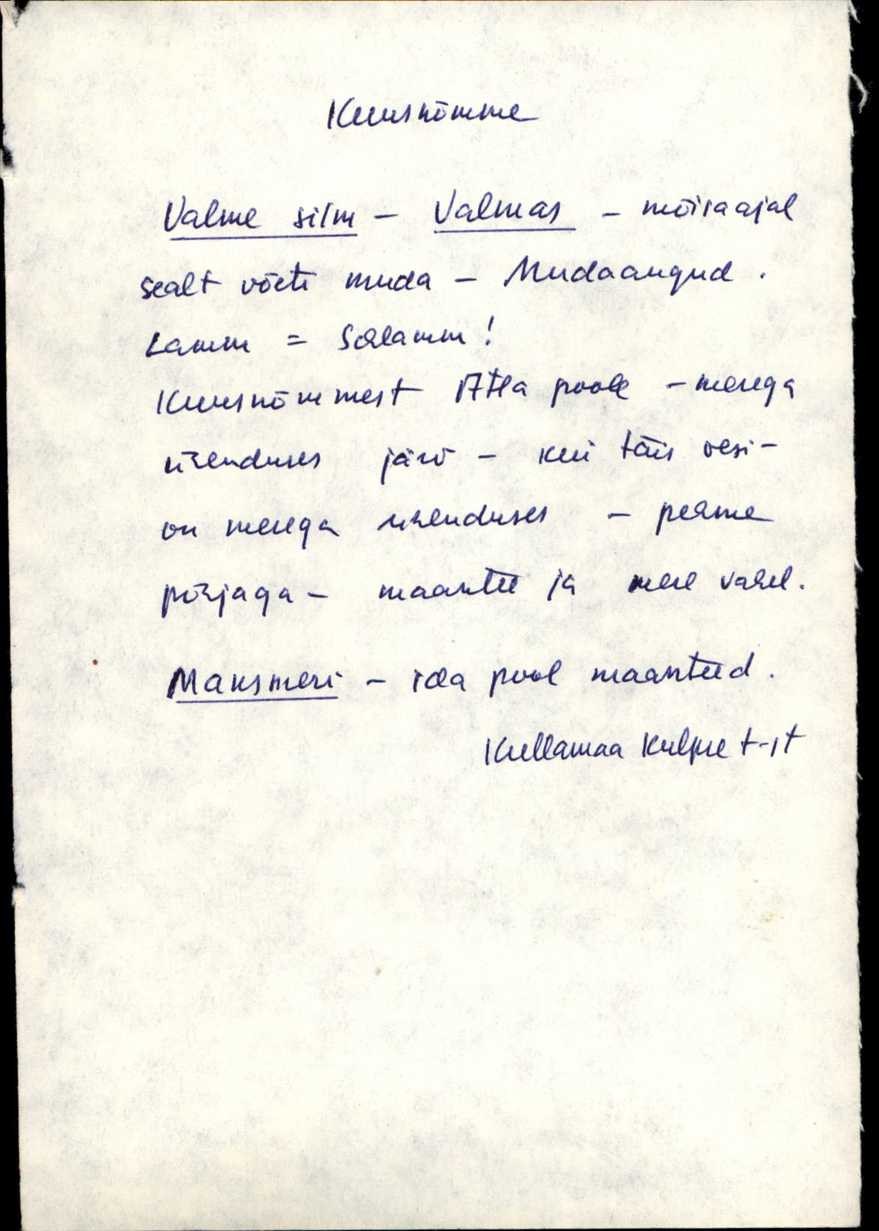 Kuusnõmme
Valme silm – Valmas – mõisaajal
sealt võeti muda – Mudaaugud.
Lamm = Schlamm!
Kuusnõmmest Atla poole – merega
ühenduses järv – kui täis vesi –
on merega ühenduses – pehme
põhjaga – maantee ja mere vahel.
Maksmeri – ida pool maanteed.
Kullamaa